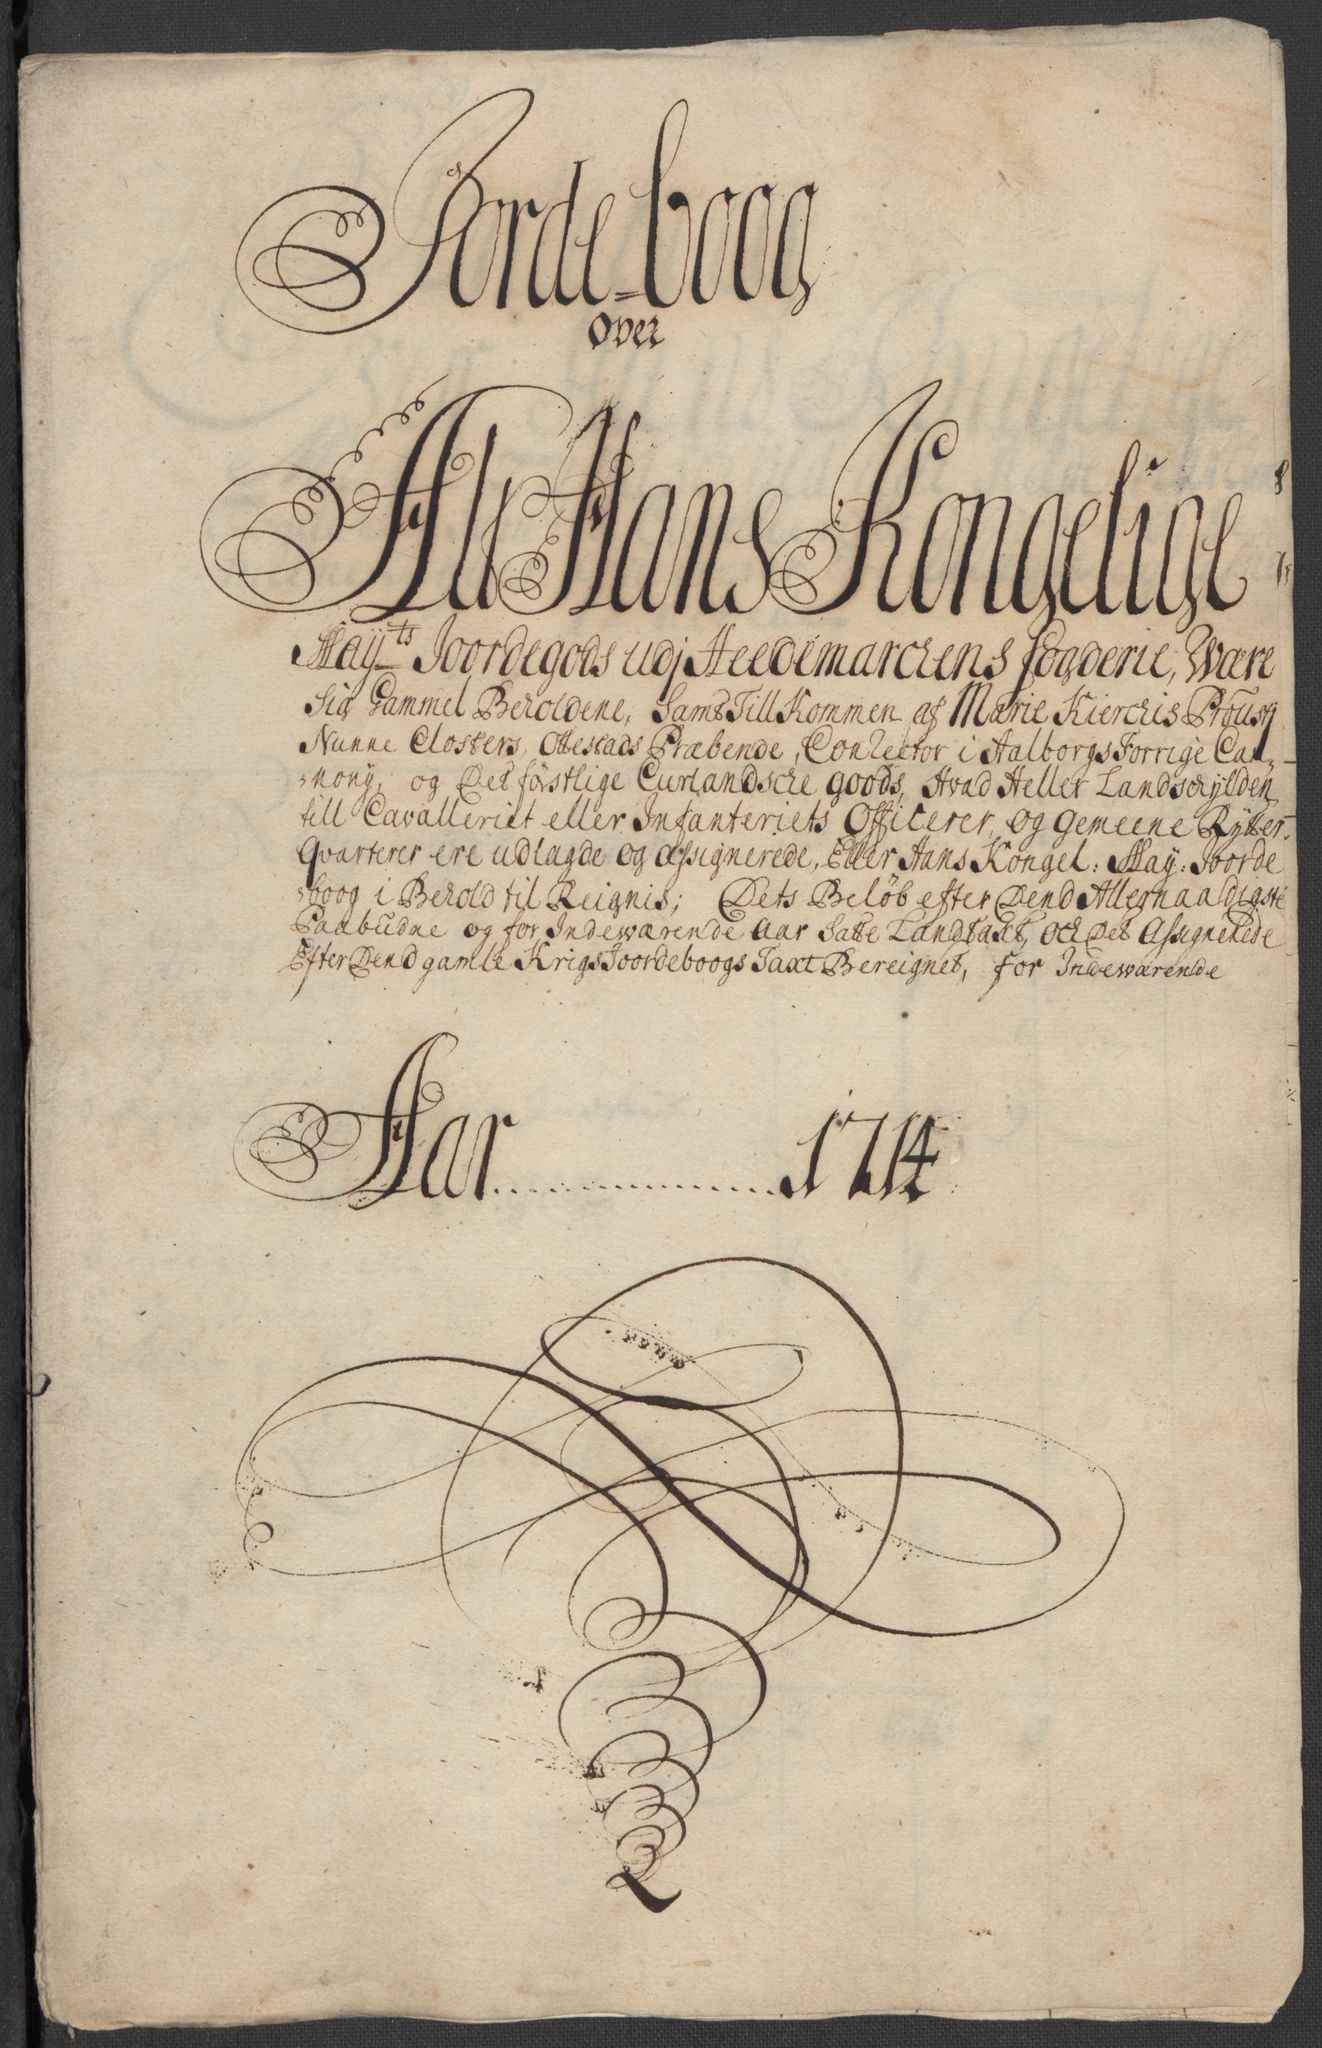 Jorde=boog
Over
Alt Hans Kongelige
May.ts Joordegods udj Heedemarckens fogderie, Være
sig Gammel Beholdene, Samt Till Kommen af Marie Kierckis Proustj
Nunne Closters, Ottestads Præbende, Conrector i Aalborgs Forrige Ca-
nonj, og Det förstlige Curlandsche goods, Hvad Heller Landschylden
till Cavalleriet eller Infanteriets Officerer, og gemeene Rytter-
Qvarterer ere udlagde og assignerede, Eller Hans Kongel: May: Joorde
boog i Behold til Reignis; Dets Beløb efter Dend Allernaadigste
Paabudne og for Indeværende aar Satte Landtaxt, och Det Assignerede
Efter Dend gamle Krigs Joordeboogs Taxt Bereignet, for Indeværende
Aar 1714